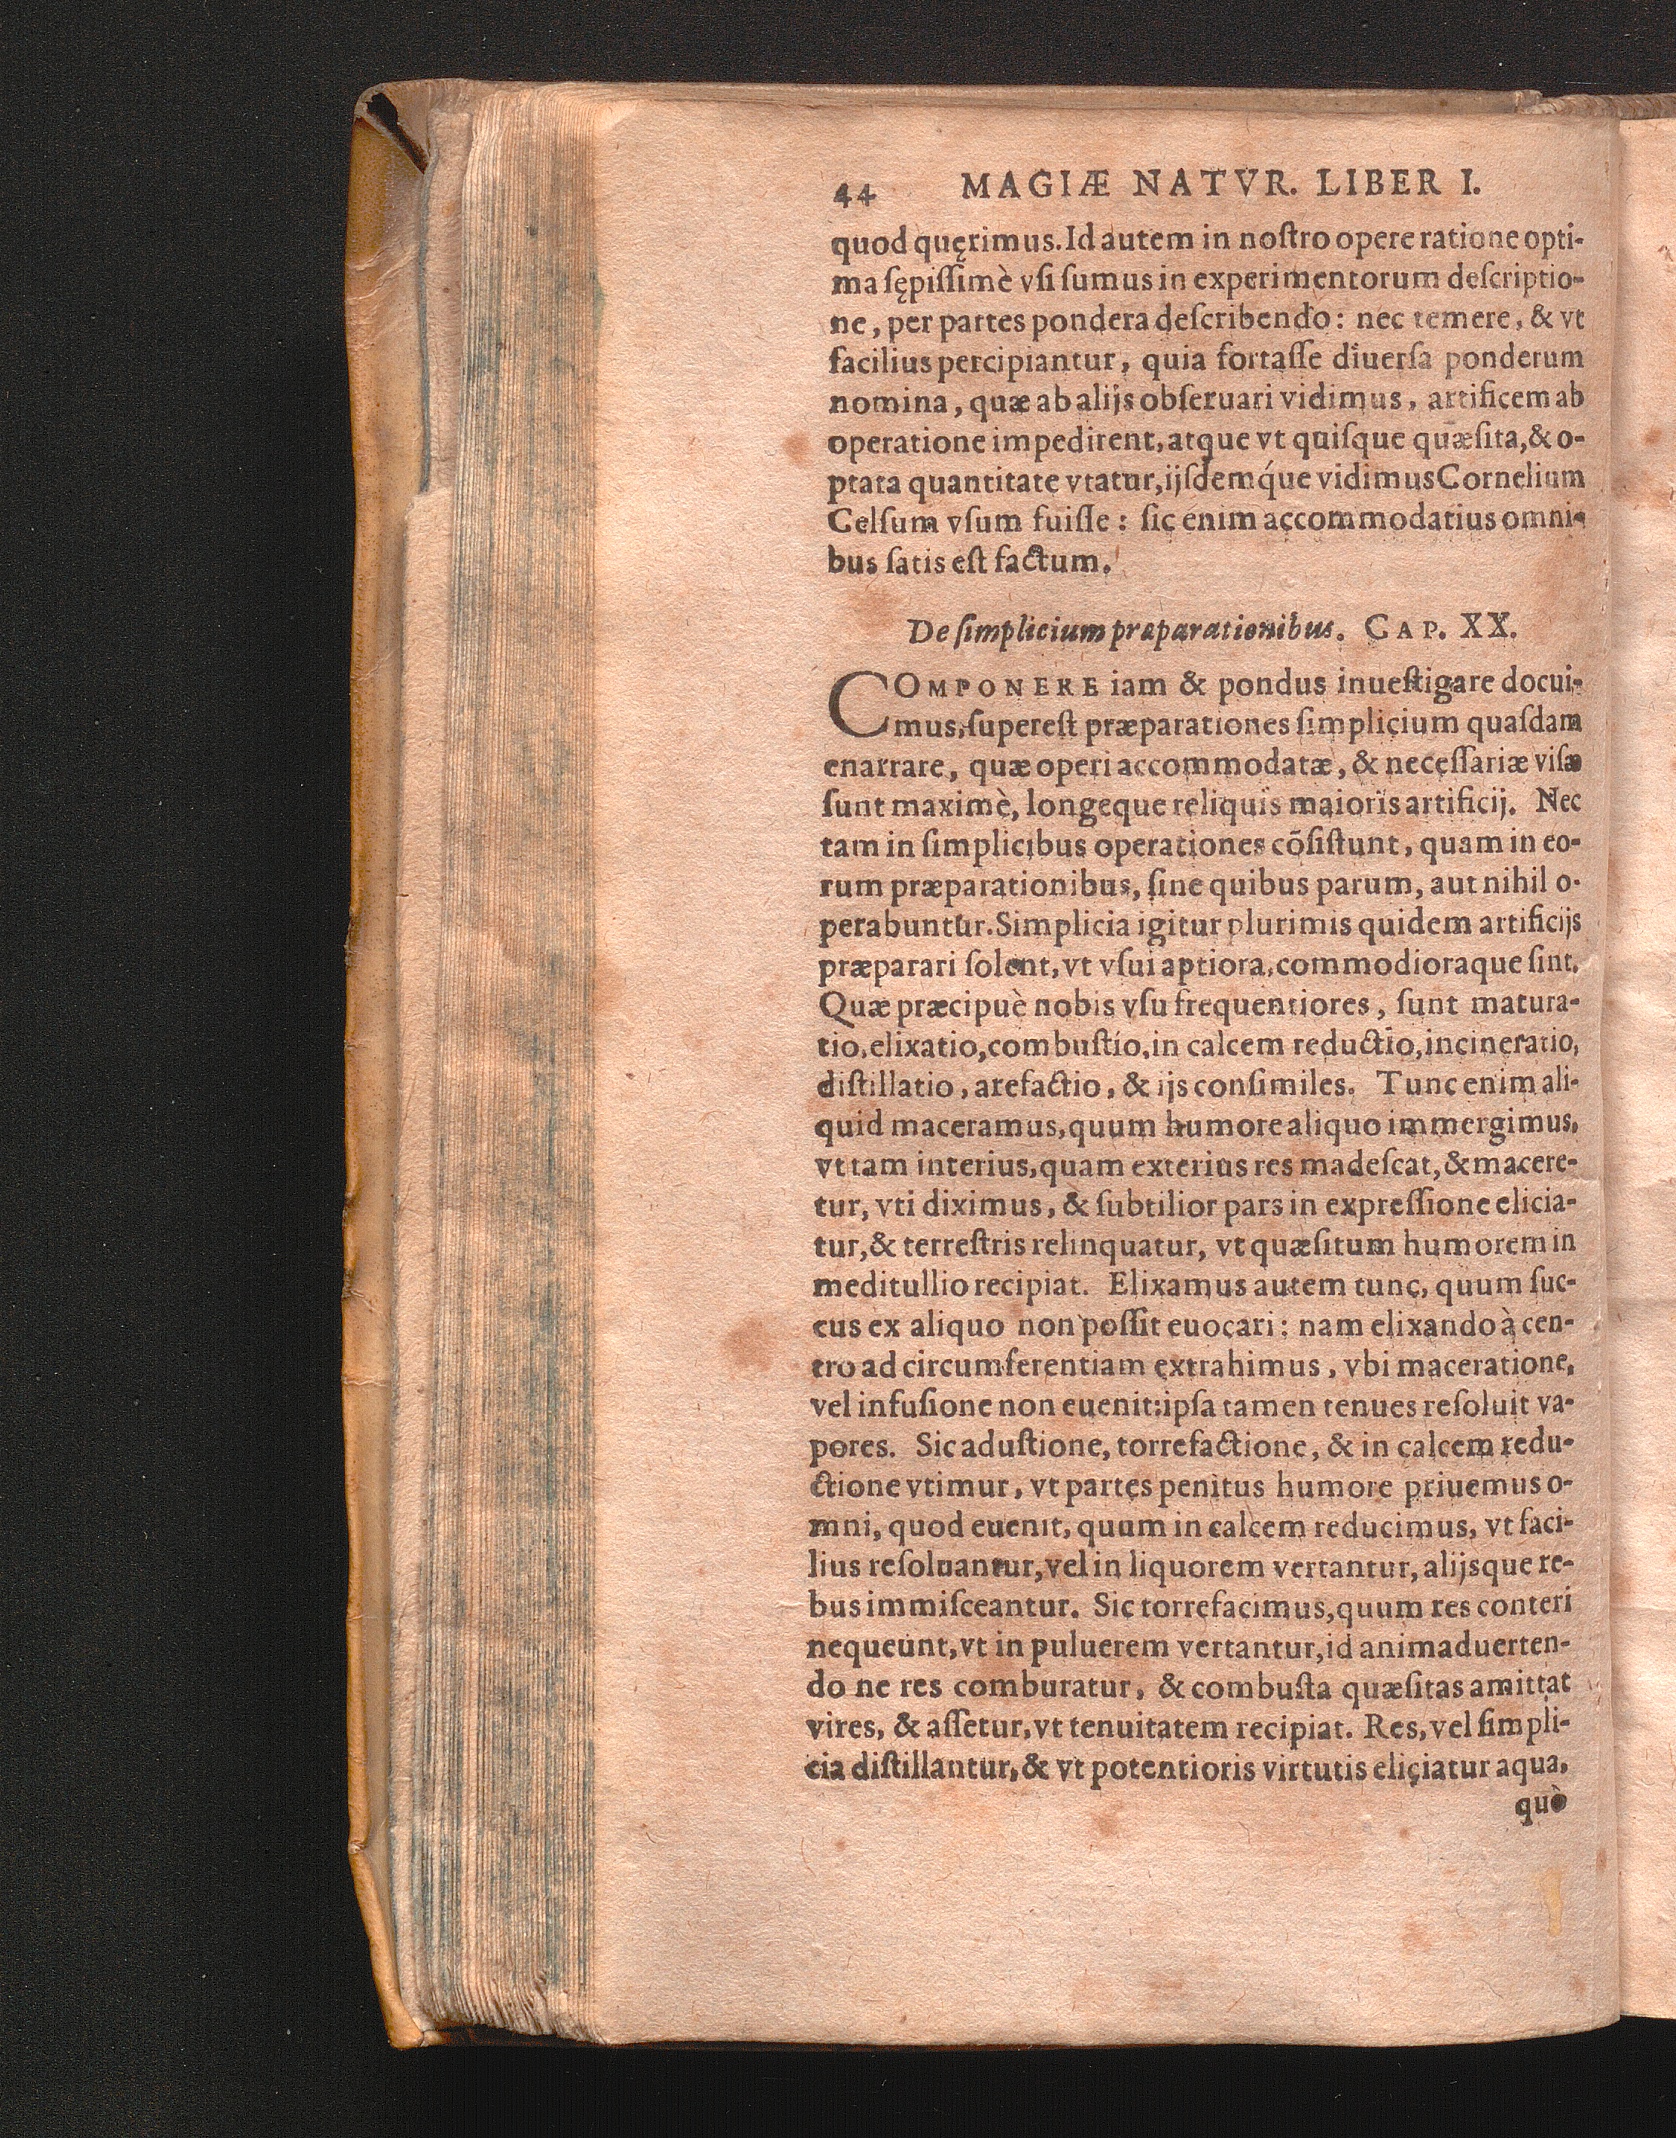 44 MAGIÆ NATVR. LIBER I.
quod quęrimus. Id autem in noſtro opere ratione opti-
ma ſępiſſimè vſi ſumus in experimentorum deſcriptio-
ne, per partes pondera deſcribendo: nec temere, & vt
facilius percipiantur, quia fortaſſe diuerſa ponderum
nomina, quæ ab alijs obſeruari vidimus, artificem ab
operatione impedirent, atque vt quiſque quæſita, & o-
ptata quantitate vtatur, ijſdemq́ue vidimus Cornelium
Celſum vſum fuiſſe: ſic enim accommodatius omni-
bus ſatis eſt factum.
De ſimplicium præparationibus. CAP. XX.
COMPONERE iam & pondus inueſtigare docui-
mus, ſupereſt præparationes ſimplicium quaſdam
enarrare, quæ operi accommodatæ, & neceſſariæ viſæ
ſunt maximè, longeque reliquis maioris artificij. Nec
tam in ſimplicibus operationes cõſiſtunt, quam in eo-
rum præparationibus, ſine quibus parum, aut nihil o-
perabuntur. Simplicia igitur plurimis quidem artificijs
præparari ſolent, vt vſui aptiora, commodioraque ſint.
Quæ præcipuè nobis vſu frequentiores, ſunt matura-
tio, elixatio, combuſtio, in calcem reductio, incineratio,
diſtillatio, arefactio, & ijs conſimiles. Tunc enim ali-
quid maceramus, quum humore aliquo immergimus,
vt tam interius, quam exterius res madeſcat, & macere-
tur, vti diximus, & ſubtilior pars in expreſſione elicia-
tur, & terreſtris relinquatur, vt quæſitum humorem in
meditullio recipiat. Elixamus autem tunc, quum ſuc-
cus ex aliquo non poſſit euocari: nam elixando à cen-
tro ad circumferentiam extrahimus, vbi maceratione,
vel infuſione non euenit: ipſa tamen tenues reſoluit va-
pores. Sic aduſtione, torrefactione, & in calcem redu-
ctione vtimur, vt partes penitus humore priuemus o-
mni, quod euenit, quum in calcem reducimus, vt faci-
lius reſoluantur, vel in liquorem vertantur, alijsque re-
bus immiſceantur. Sic torrefacimus, quum res conteri
nequeunt, vt in puluerem vertantur, id animaduerten-
do ne res comburatur, & combuſta quæſitas amittat
vires, & aſſetur, vt tenuitatem recipiat. Res, vel ſimpli-
cia diſtillantur, & vt potentioris virtutis eliciatur aqua,
quò